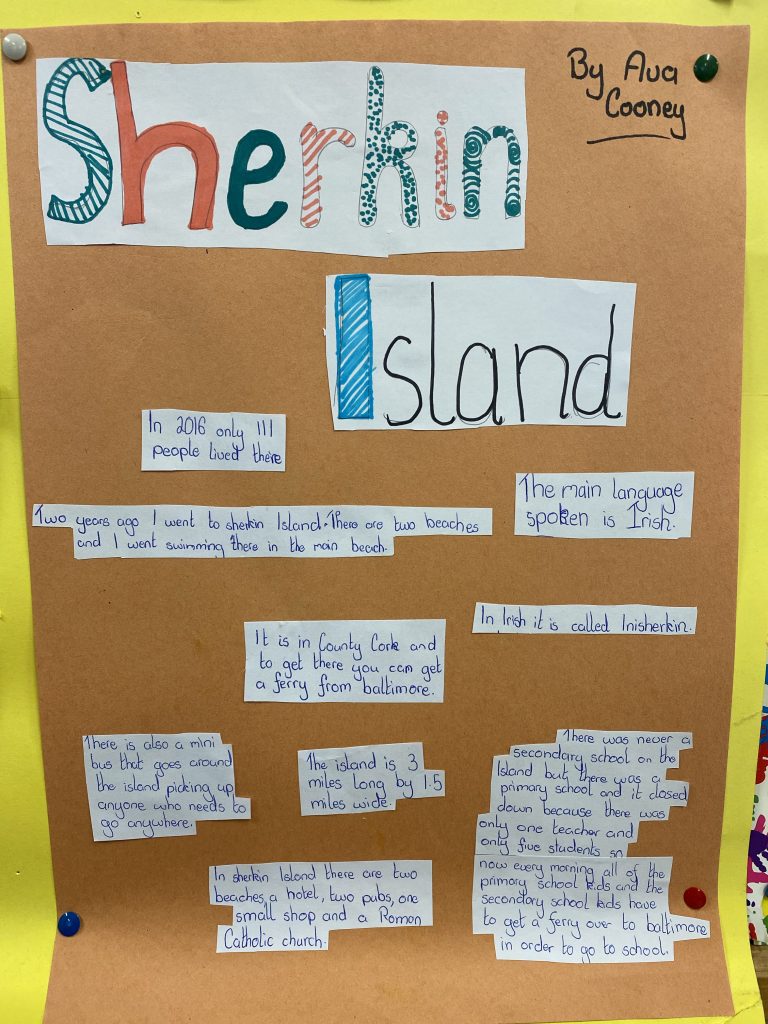 Sherkin
By Ava
Cooney
Island
In 2016 only 111
people lived there
The main language
spoken is Irish.
Two years ago I went to sherkin Island. There are two beaches
and I went swimming there in the main beach.
In Irish it is called Inisherkin.
It is in County Cork and
to get there you can get
a ferry from baltimore.
There is also a mini
bus that goes around
the island picking up
anyone who needs to
go anywhere.
The island is 3
miles long by 1.5
miles wide.
There was never a
secondary school on the
Island but there was a
primary school and it closed
down because there was
only one teacher and
only five students so
now every morning all of the
primary school kids and the
secondary school kids have
to get a ferry over to baltimore
in order to go to school.
In sherkin Island there are two
beaches, a hotel, two pubs, one
small shop and a Roman
Catholic church.